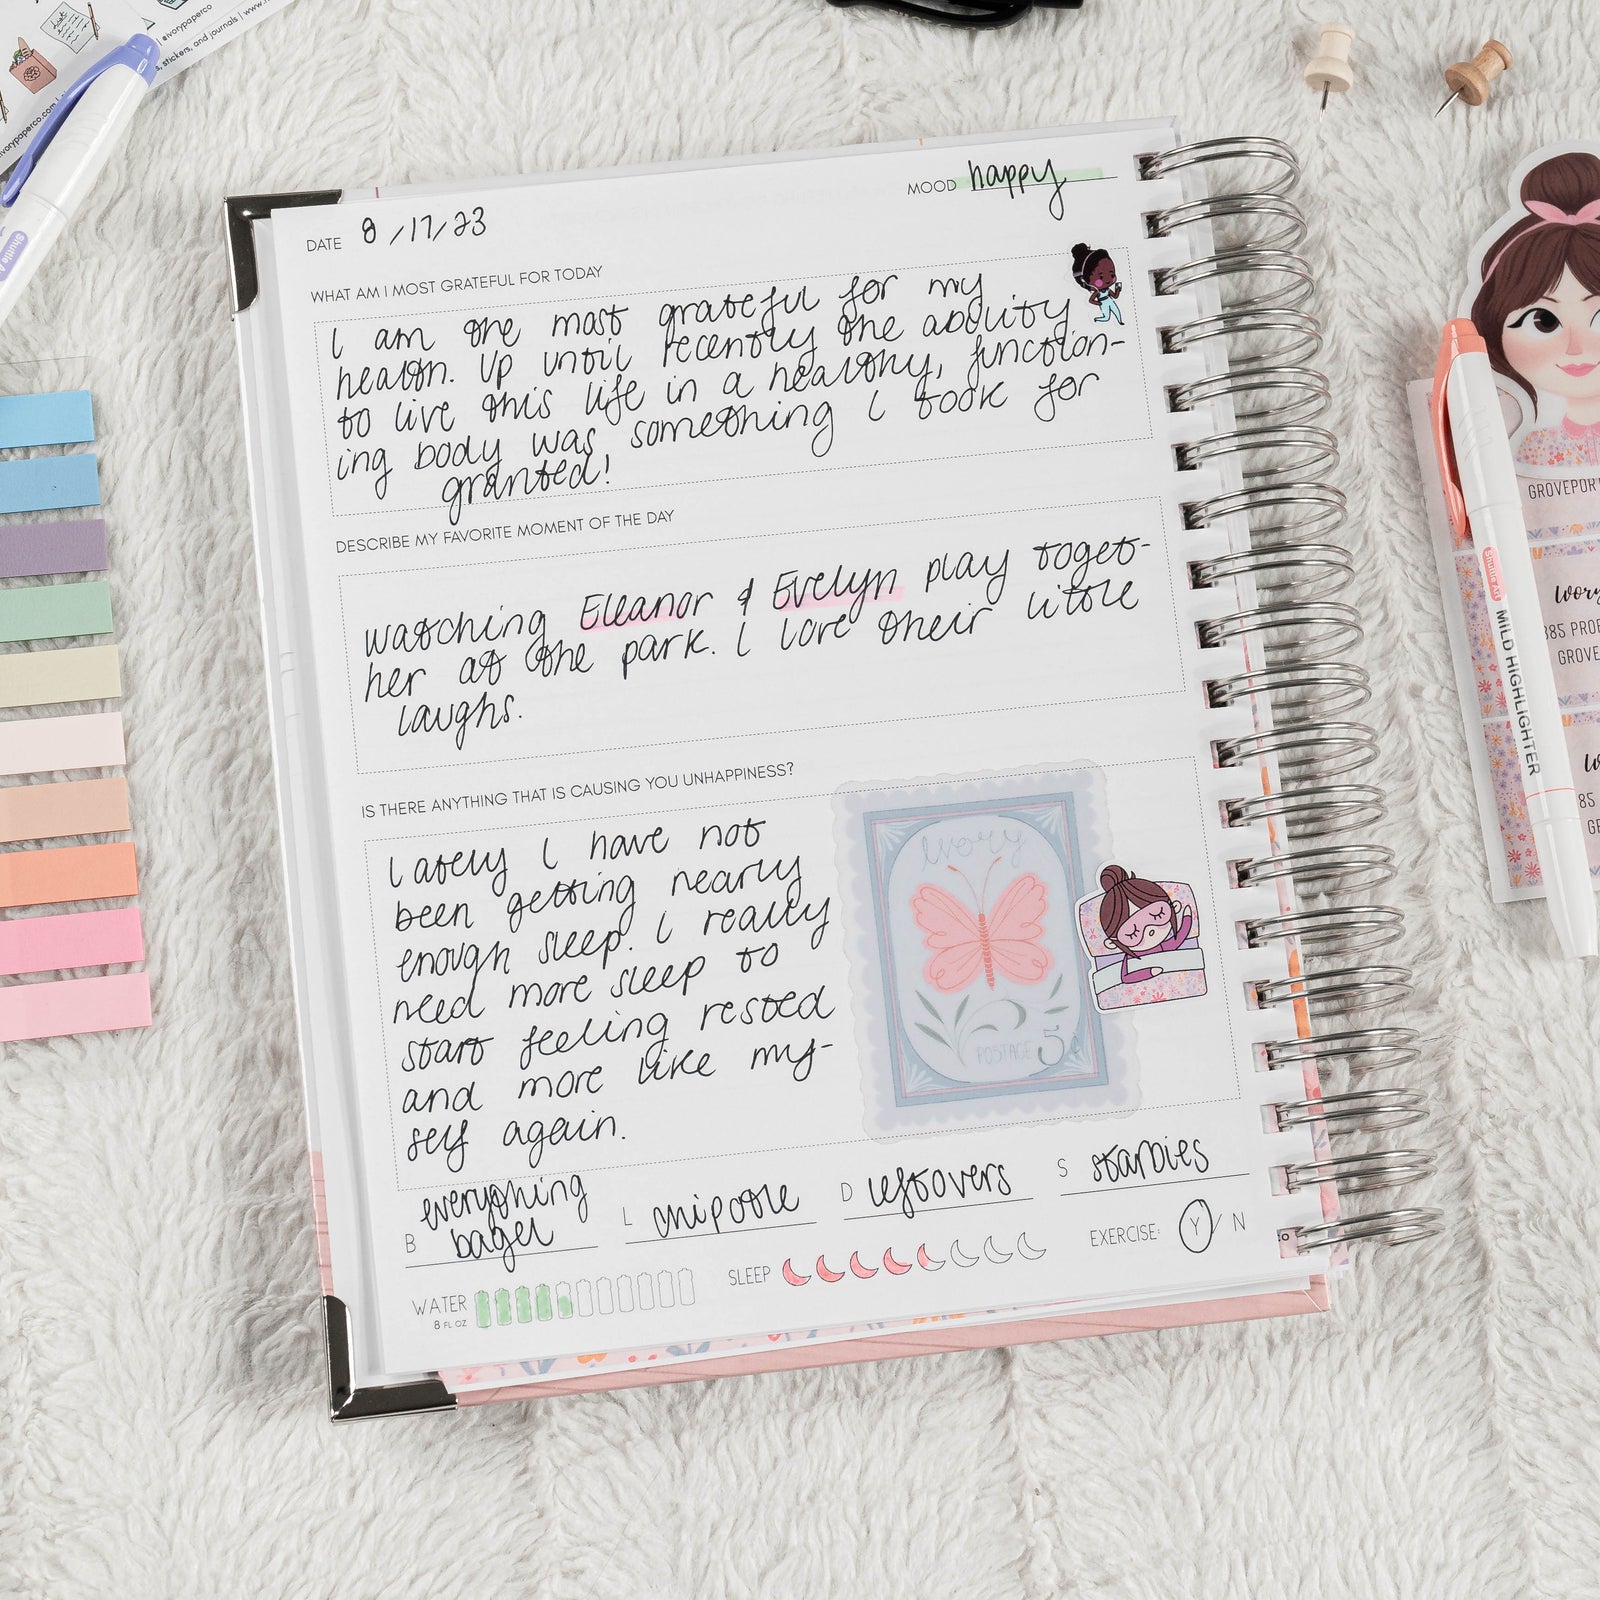 @ivorypaperco | www.
s, stickers, and journals |
ivorypaperco.com
Shuttle A
MOOD happy
DATE 8/17/23
WHAT AM I MOST GRATEFUL FOR TODAY
I am the most grateful for my
health. Up until recently the ability
to live this life in a healthy, function-
ing body was something I took for
granted!
DESCRIBE MY FAVORITE MOMENT OF THE DAY
Watching Eleanor & Evelyn play toget-
her at the park. I love their little
laughs.
IS THERE ANYTHING THAT IS CAUSING YOU UNHAPPINESS?
Lately I have not
been getting nearly
enough sleep. I really
need more sleep to
start feeling rested
and more like my-
self again.
Ivory
POSTAGE 5¢
B everything
bagel
L chipotle
D leftovers
S starbies
WATER
8 FL OZ
SLEEP
EXERCISE: Y / N
GROVEPOR
Ivory
385 PROE
GROVE
85
GE
Shuttle Art MILD HIGHLIGHTER